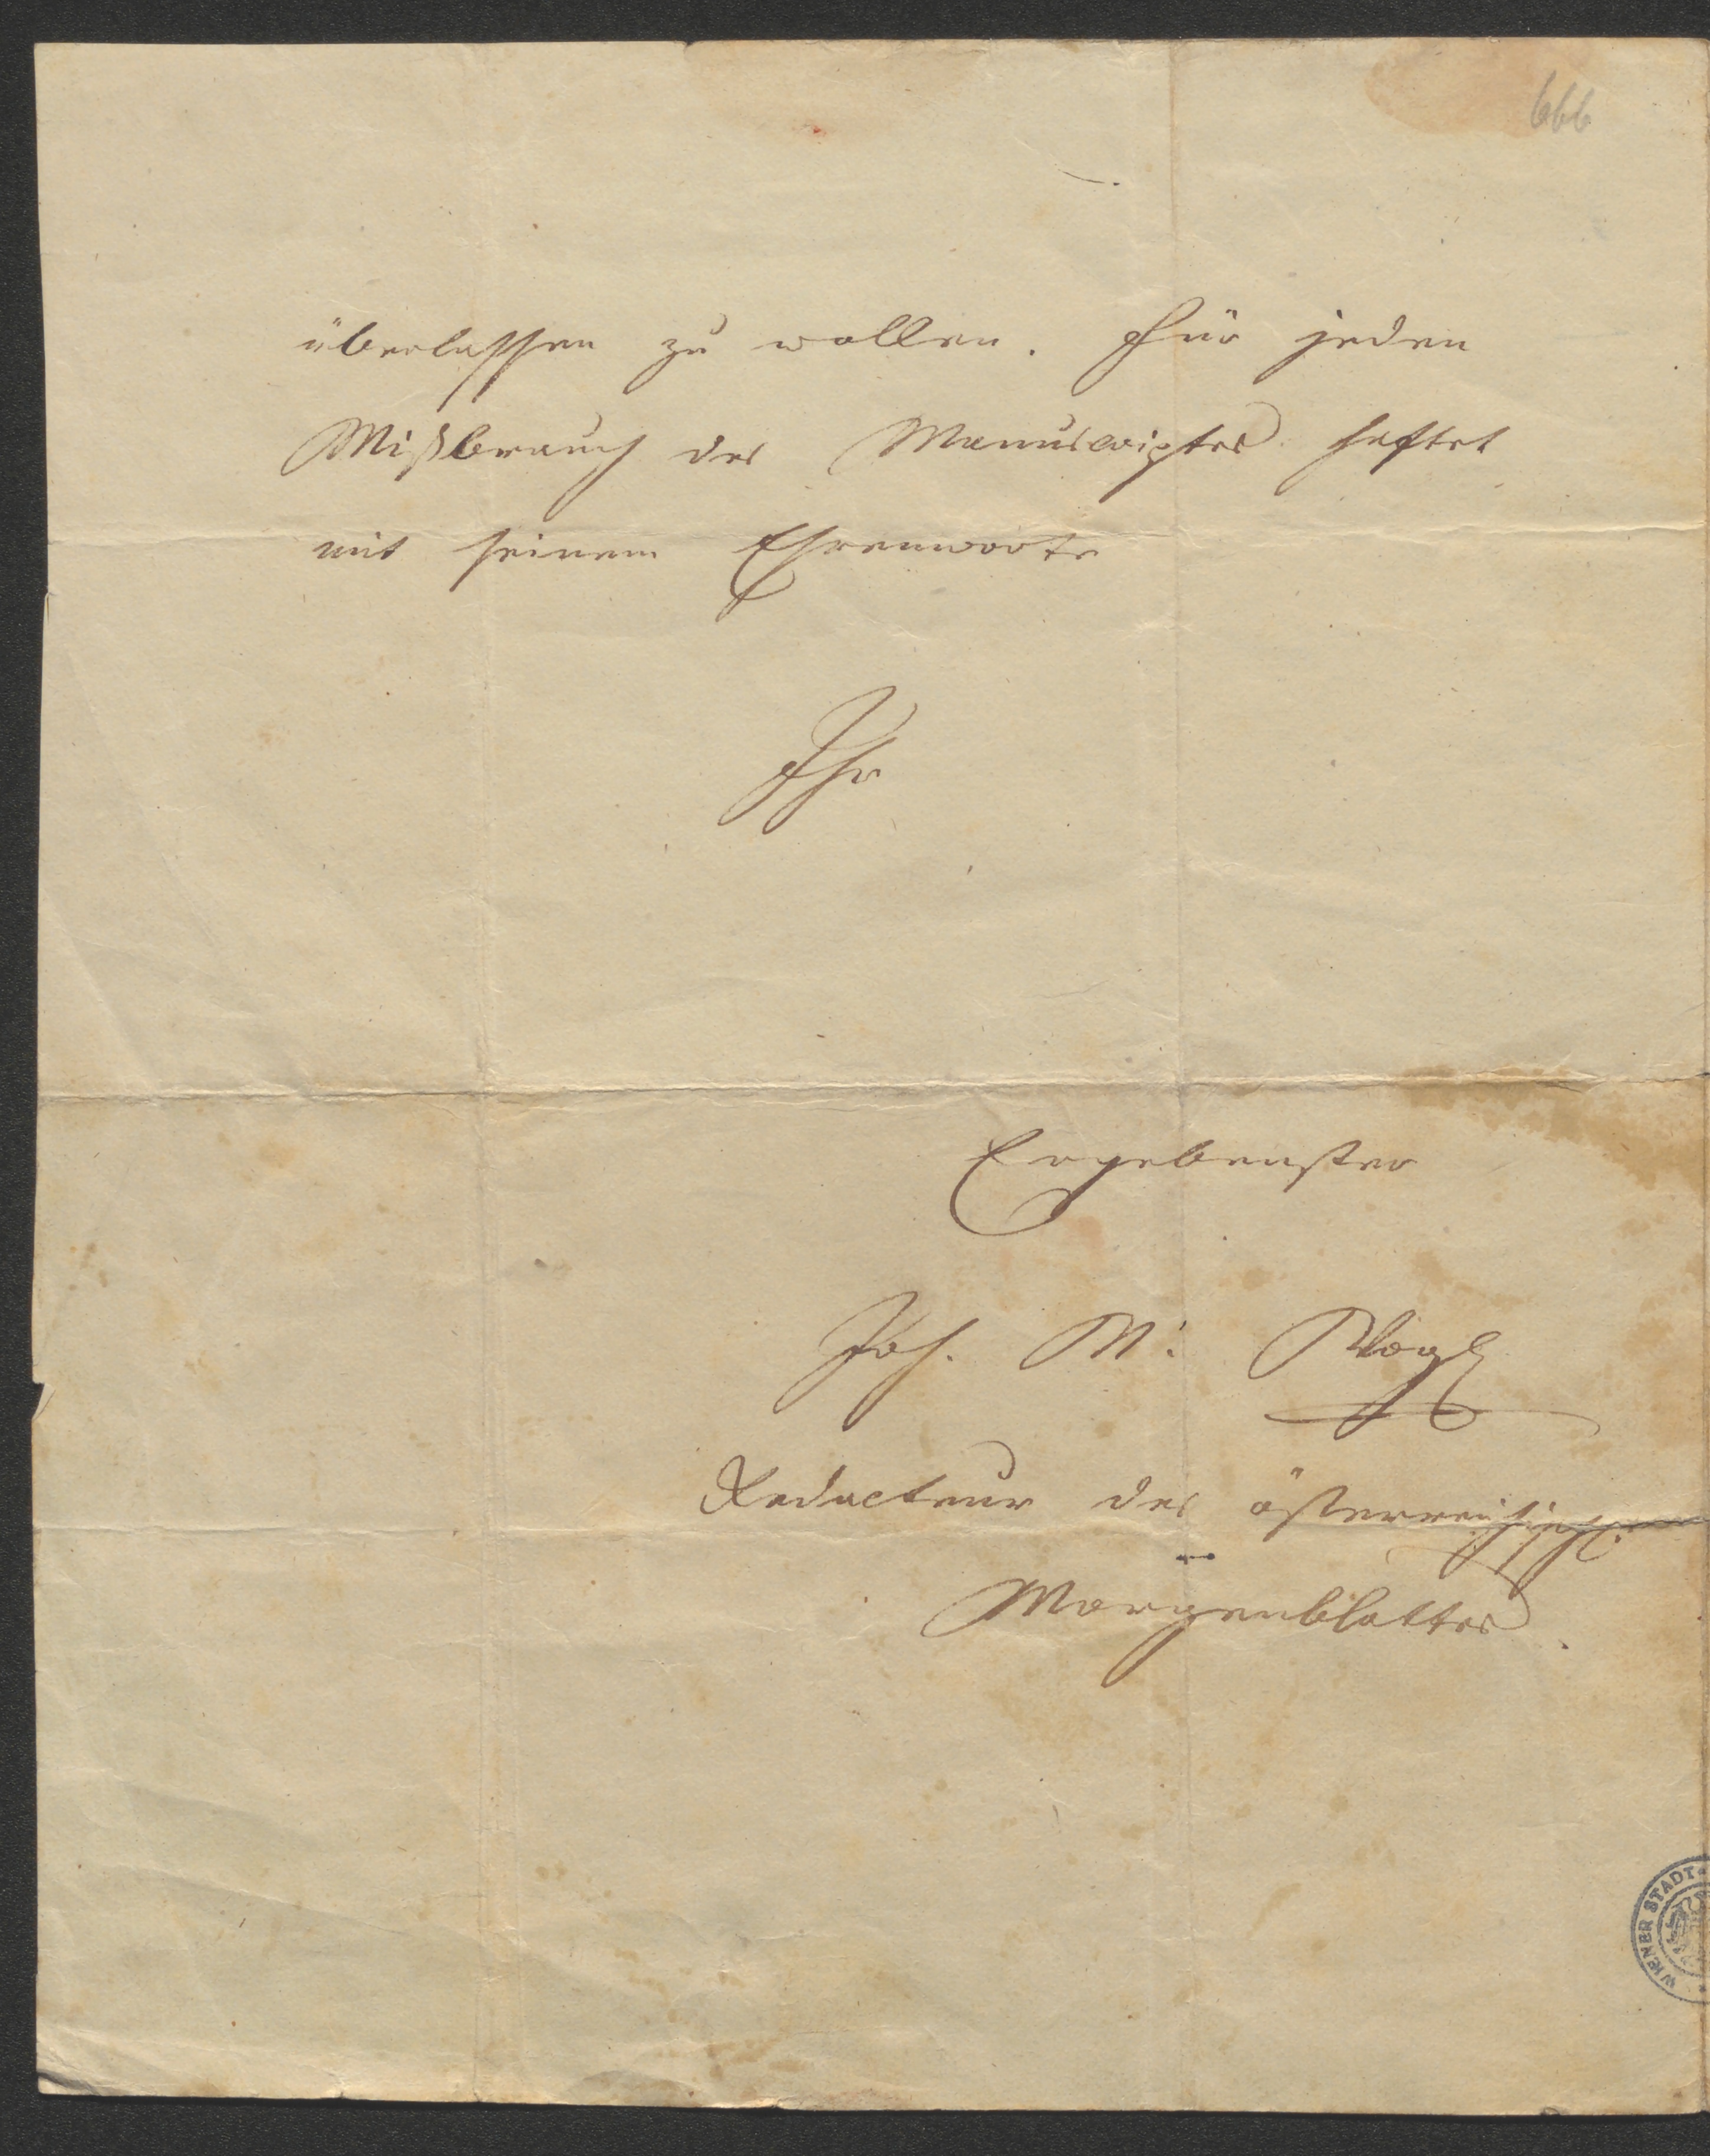 666
überlassen zu wollen. Für jeden
Mißbrauch des Manuscriptes haftet
mit seinem Ehrenworte
Ihr
Ergebenster
Joh. N. Vogl
Redacteur des österreichisch.
Morgenblattes.
WIENER STADT